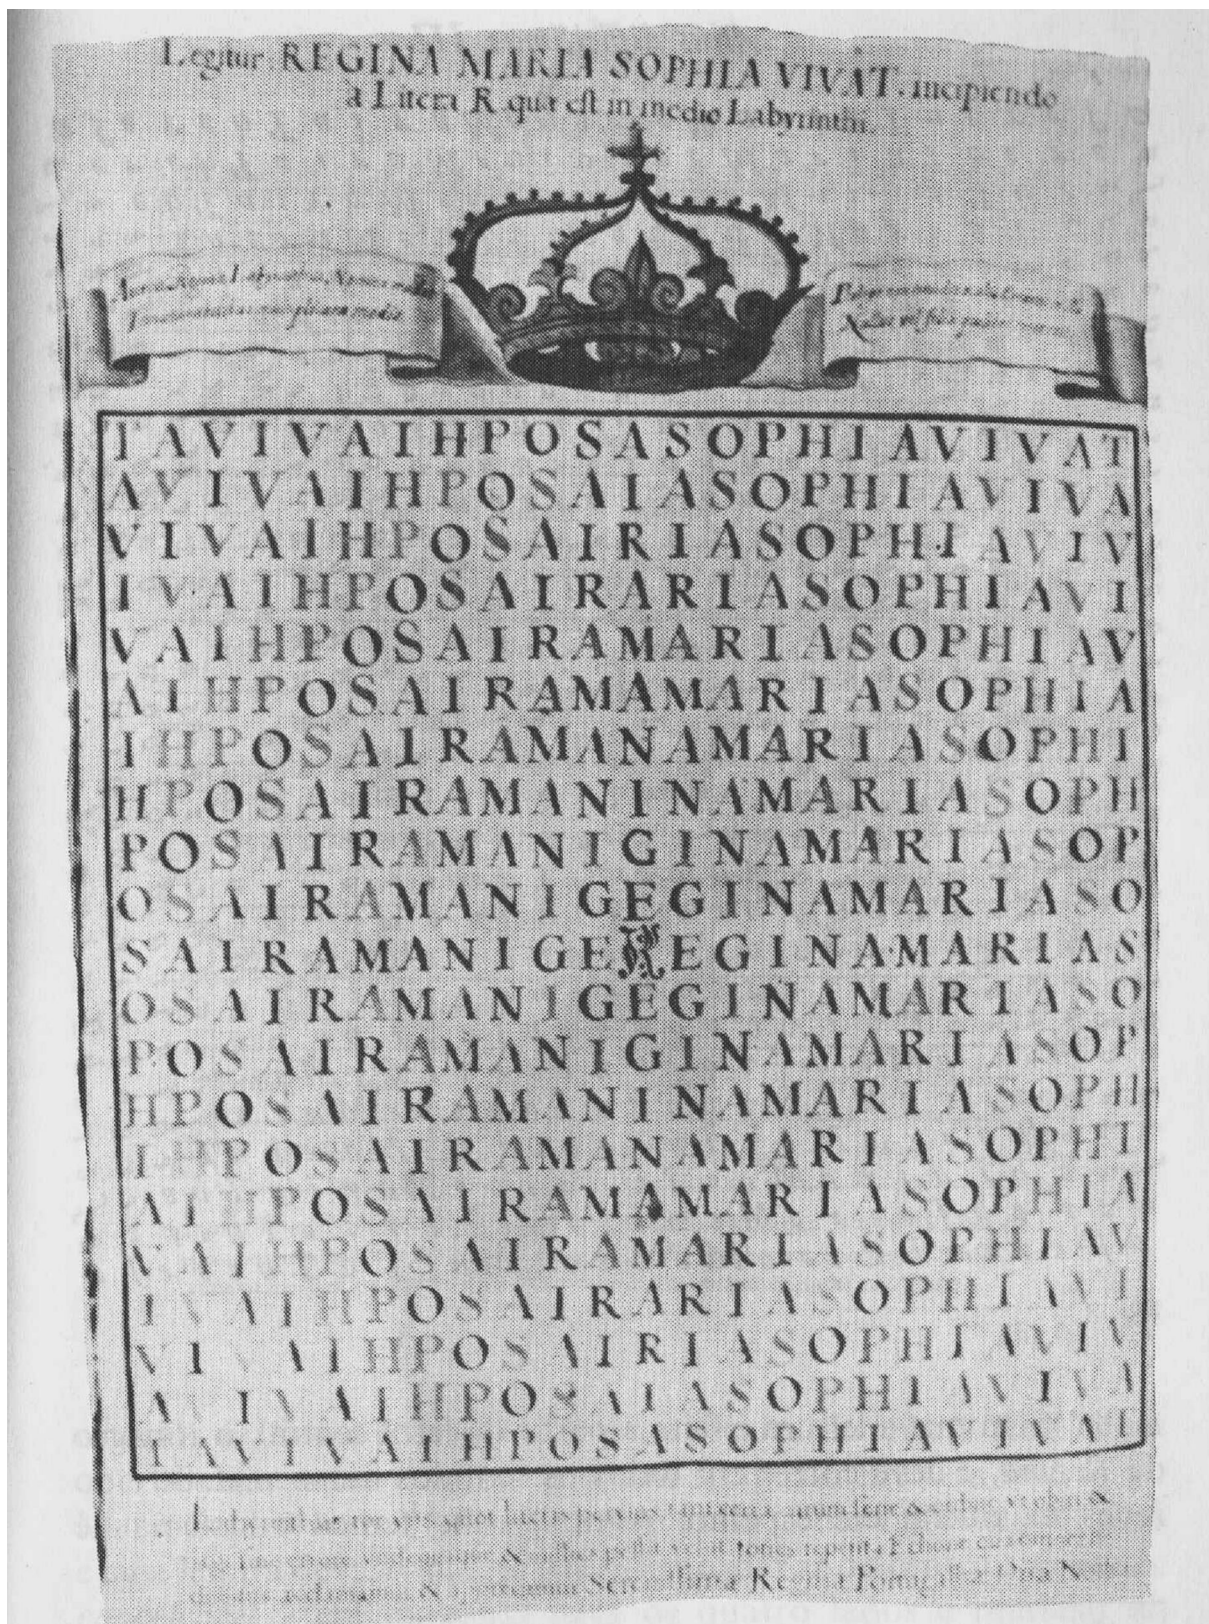 Legitur REGINA MARIA SOPHIA VIVAT. incipiendo
a Litera R quæ est in medio Labyrinthi.
T A V I V A I H P O S A S O P H I A V I V A T
A V I V A I H P O S A I A S O P H I A V I V A
V I V A I H P O S A I R I A S O P H I A V I V
I V A I H P O S A I R A R I A S O P H I A V I
V A I H P O S A I R A M A R I A S O P H I A V
A I H P O S A I R A M A M A R I A S O P H I A
I H P O S A I R A M A N A M A R I A S O P H I
H P O S A I R A M A N I N A M A R I A S O P H
P O S A I R A M A N I G I N A M A R I A S O P
O S A I R A M A N I G E G I N A M A R I A S O
S A I R A M A N I G E R E G I N A M A R I A S
O S A I R A M A N I G E G I N A M A R I A S O
P O S A I R A M A N I G I N A M A R I A S O P
H P O S A I R A M A N I N A M A R I A S O P H
I H P O S A I R A M A N A M A R I A S O P H I
A I H P O S A I R A M A M A R I A S O P H I A
V A I H P O S A I R A M A R I A S O P H I A V
I V A I H P O S A I R A R I A S O P H I A V I
V I V A I H P O S A I R I A S O P H I A V I V
A V I V A I H P O S A I A S O P H I A V I V A
T A V I V A I H P O S A S O P H I A V I V A T
literis pervius
Serenissima Regina